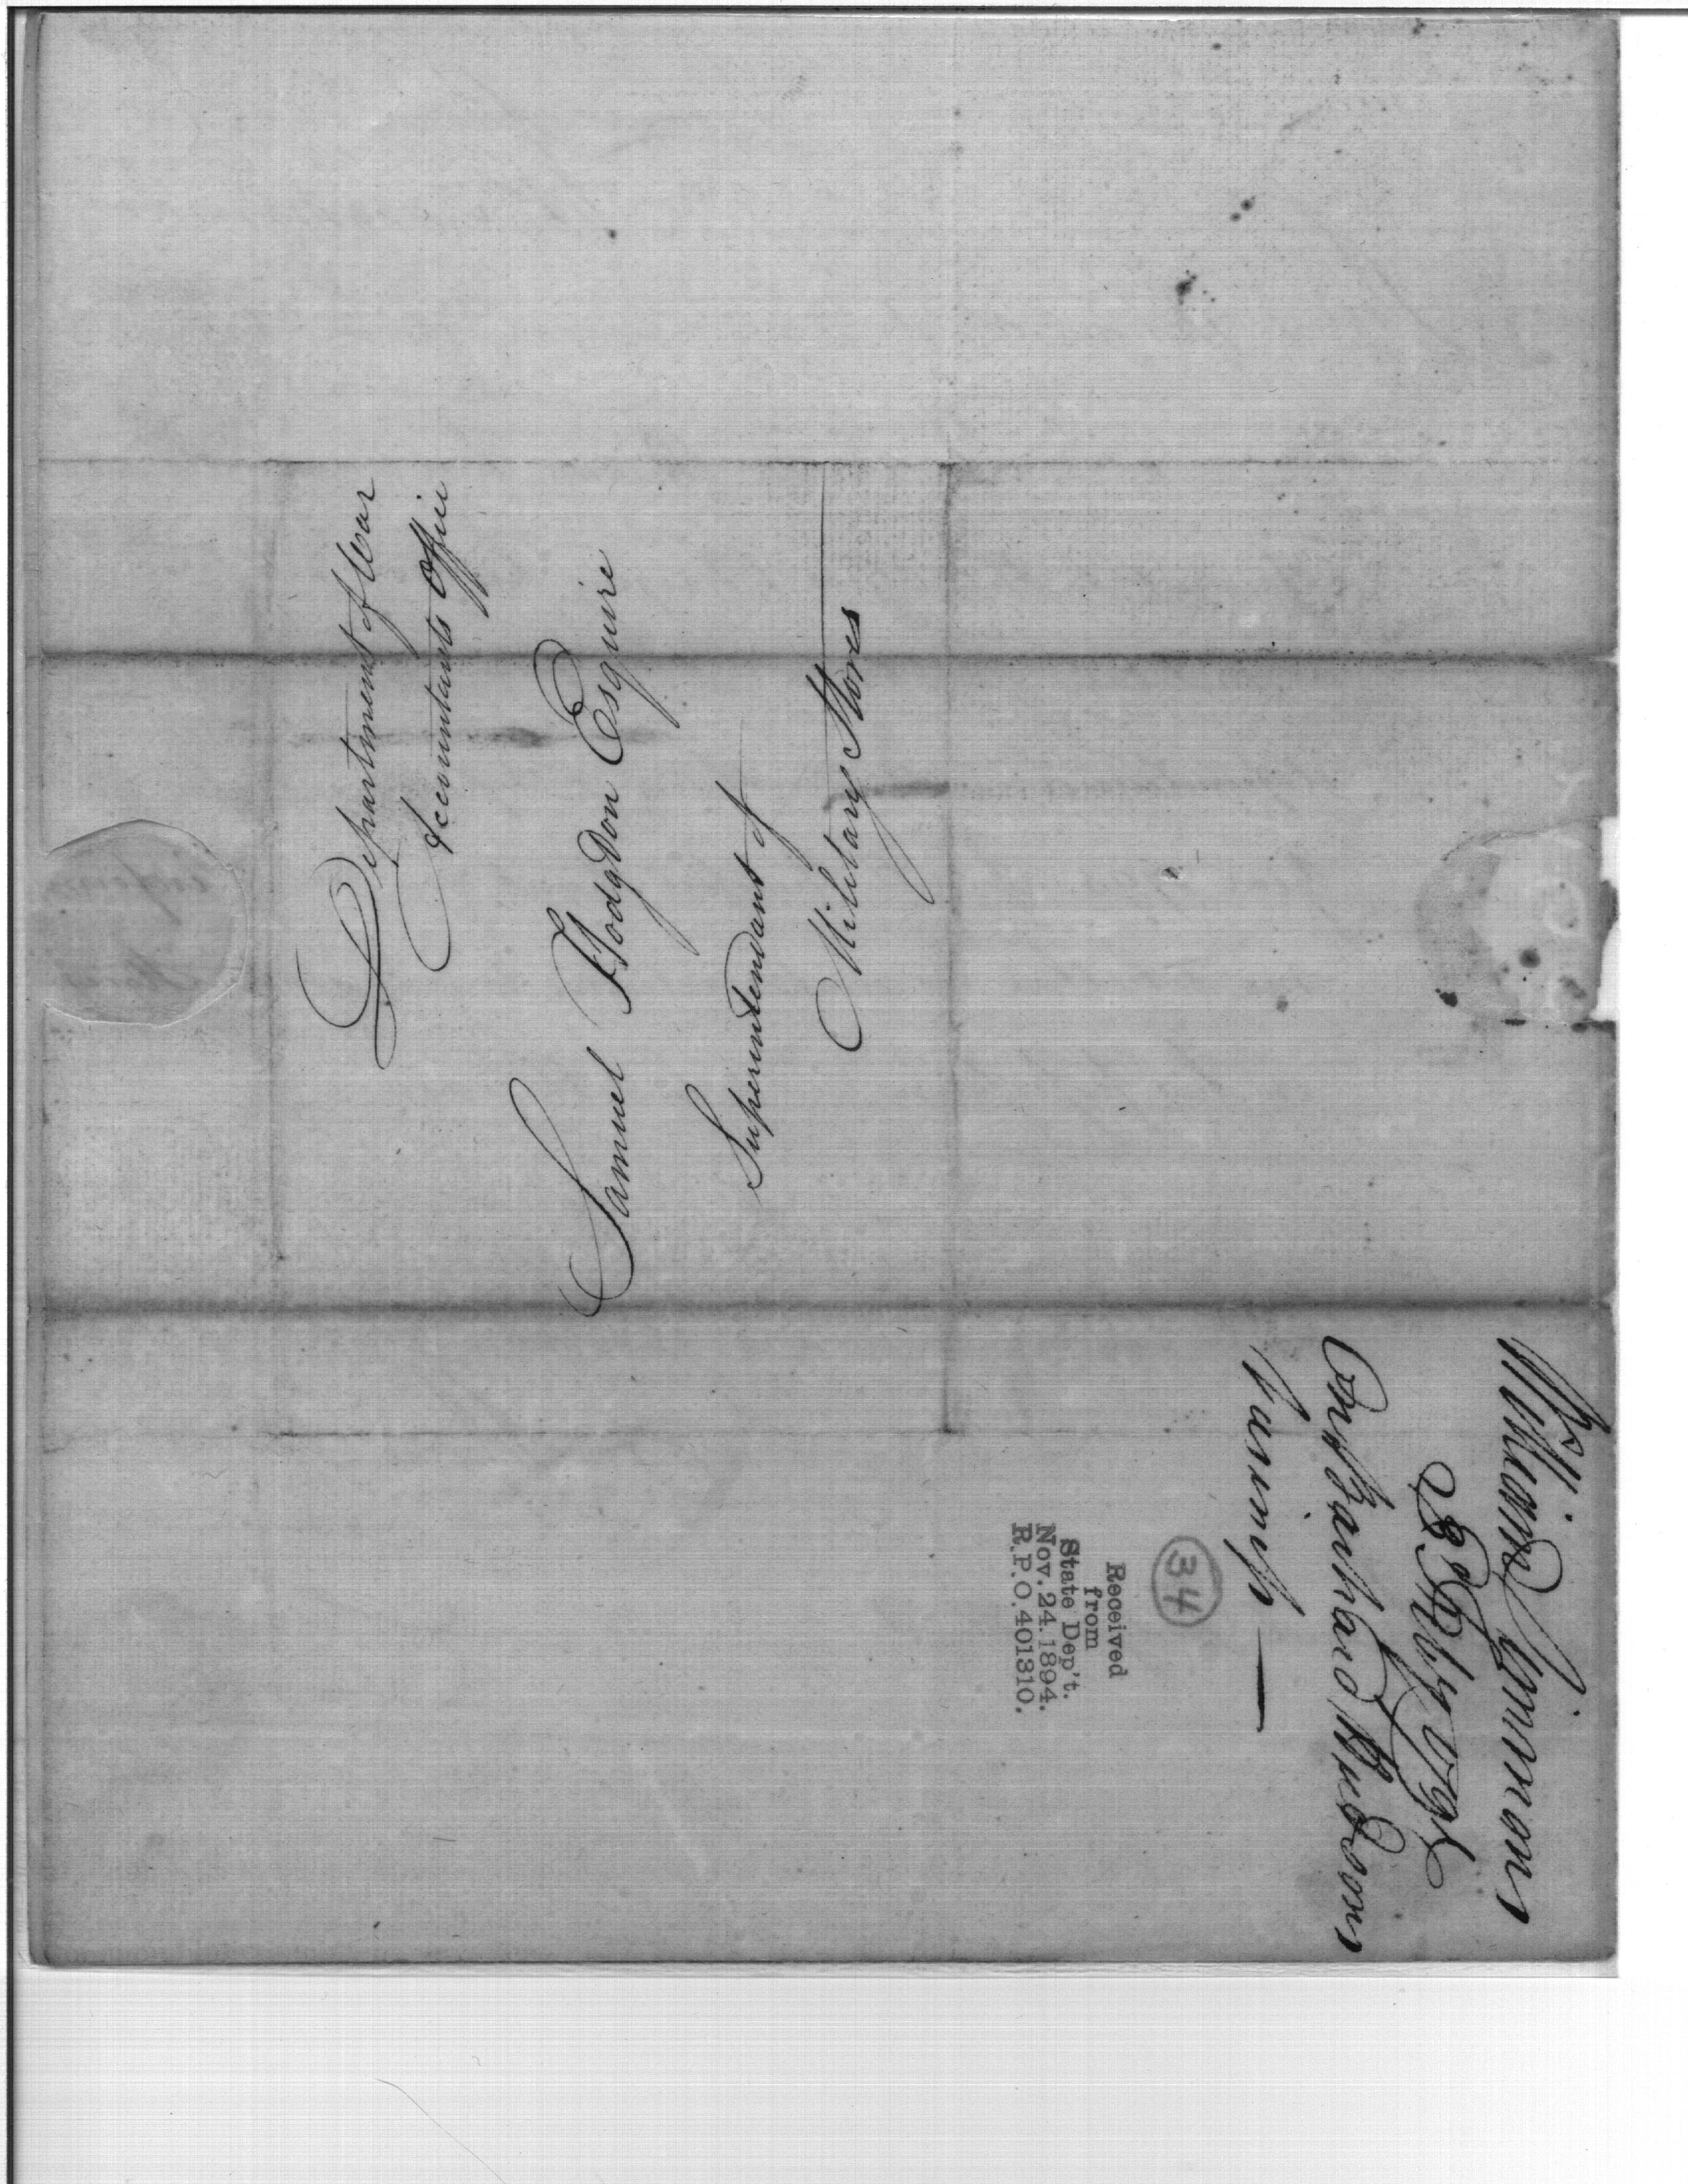 Department of War
Accountants Office
Samuel Hodgdon Esquire
Superintendant of
Military Stores
William Simmons
Feby
Hudsons
34
Received
from
State Dep't.
Nov.24.1894.
R.P.O.401310.